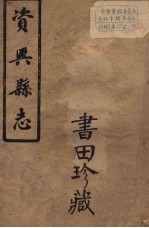 資興縣志
書田珍藏